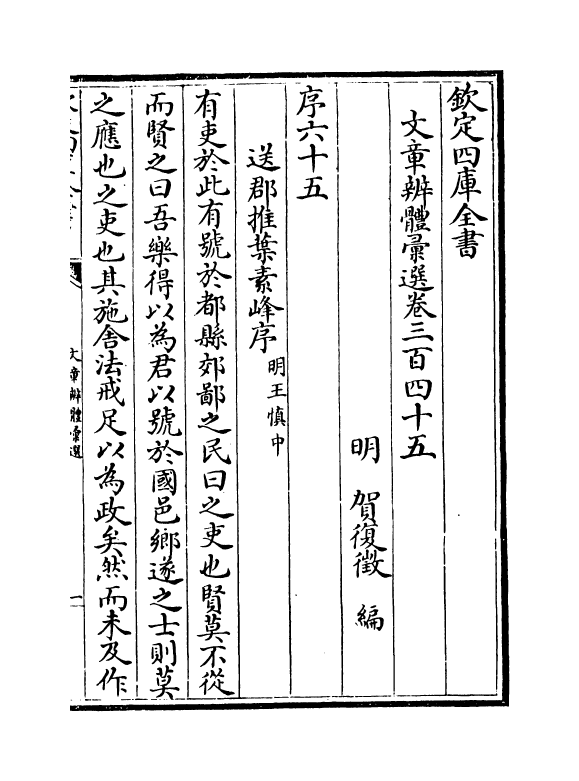 欽定四庫全書
文章辨體彙選卷三百四十五
明 賀復徵 編
序六十五
送郡推葉素峰序 明王慎中
有吏於此有號於都縣郊鄙之民曰之吏也賢莫不從
而賢之曰吾樂得以為君以號於國邑鄉遂之士則莫
之應也之吏也其施舍法戒足以為政矣然而未及作
文章辨體彙選
一